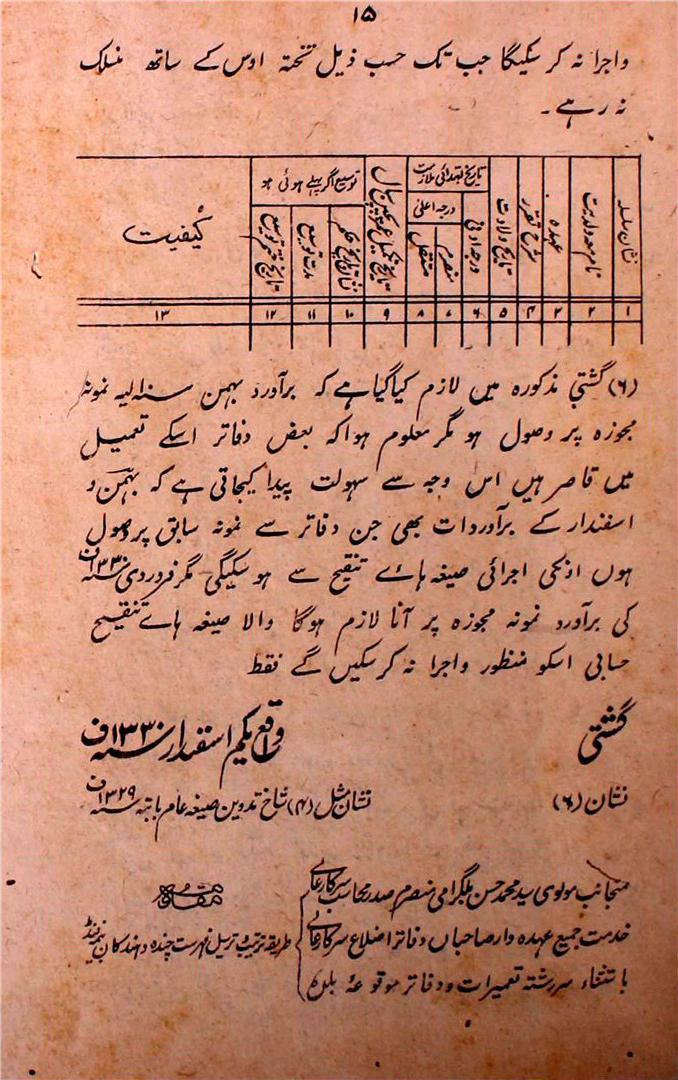 ۱۵
واجرا نہ کر سکیگا جب تک حسب ذیل تختہ اوس کے ساتھ منسلک
نہ رہے۔
نشان سلسلہ
نام معہ ولدیت
عہدہ
شرح تقرر
تاریخ ولادت
تاریخ ابتدائی ملازمت
درجہ ادنیٰ
درجہ اعلیٰ
منصرم
مستقل
تاریخ تکمیل عمر پچپن سال
توسیع اگر پہلے ہوئی ہو
نشان و تاریخ حکم
مدت توسیع
تاریخ ختم توسیع
کیفیت
۱ ۲ ۳ ۴ ۵ ۶ ۷ ۸ ۹ ۱۰ ۱۱ ۱۲ ۱۳
(۶) گشتی مذکورہ میں لازم کیا گیا ہے کہ برآورد بہمن سنہ الیہ نمونہ
مجوزہ پر وصول ہو مگر معلوم ہوا کہ بعض دفاتر اسکے تعمیل
میں قاصر ہیں اس وجہ سے سہولت پیدا کیجاتی ہے کہ بہمن و
اسفندار کے برآوردات بھی جن دفاتر سے نمونہ سابق پر وصول
ہوں انکی اجرائی صیغہ ہاے تنقیح سے ہو سکیگی۔ مگر فروردی سنہ ۱۳۳۰ف
کی برآورد نمونہ مجوزہ پر آنا لازم ہوگا والا صیغہ ہاے تنقیح
حسابی اسکو منظور واجرا نہ کرسکیں گے فقط
گشتی واقع یکم اسفندار سنہ ۱۳۳۰ف
نشان (۶) نشان مثل (۴) شاخ تدوین صیغہ عام بابتہ سنہ ۱۳۲۹ف
منجانب مولوی سید محمد حسن بلگرامی منصرم صدر محاسب سرکار عالی
خدمت جمیع عہدہ دار صاحبان دفاتر اضلاع سرکار عالی
باستثناء سررشتہ تعمیرات و دفاتر موقوعۂ بلدہ
مقدمہ
طریقہ ترتیب و ترسیل فہرست چندہ دہندگان